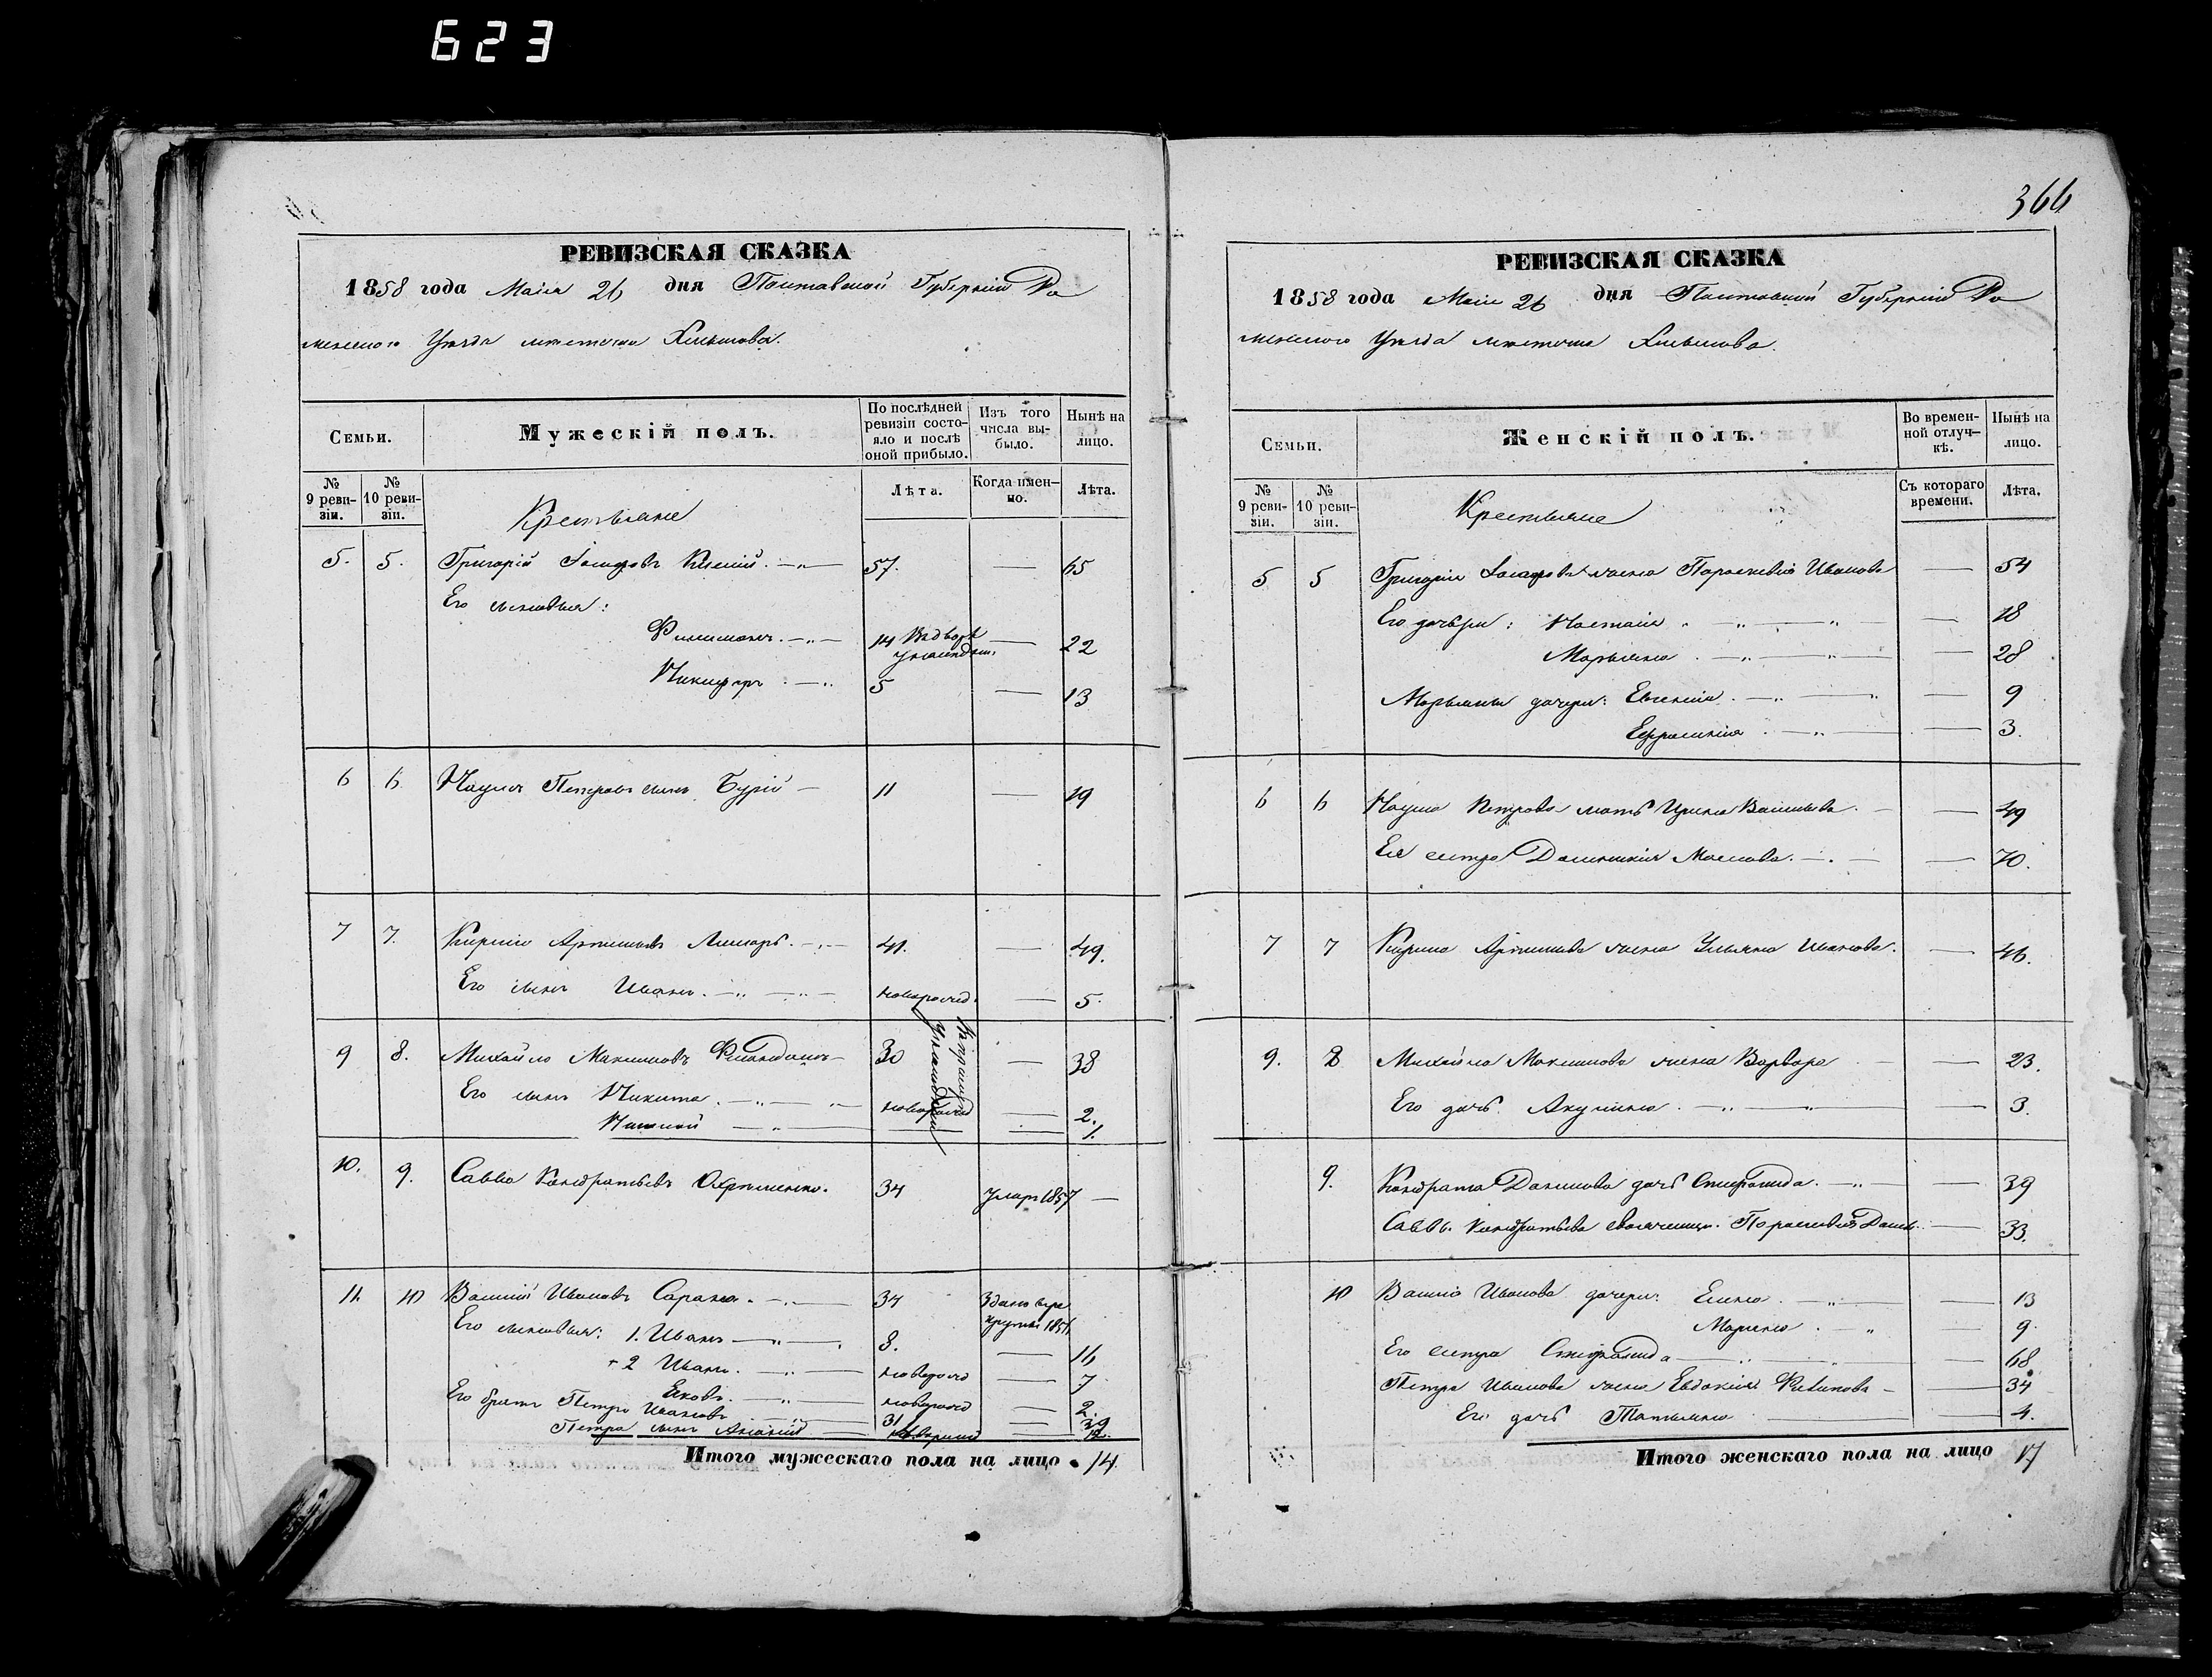 623
РЕВИЗСКАЯ СКАЗКА
1858 года Маія 26 дня Полтавской Губерніи Ро
менского Уѣзда мѣстечка
Семьи.
Мужескій полъ.
По послѣдней ревизіи состояло и послѣ оной прибыло.
Изъ того числа выбыло.
Нынѣ на лицо.
№ 9 ревизіи.
№ 10 ревизіи.
Лѣта.
Когда именно.
Лѣта.
Крестьяне
5. 5. Григорій Іосифовъ 57. — 65
Его сыновья:
Филимонъ 14 — 22
Никифоръ 5 — 13
6 6 Наумъ Петровъ сынъ Бурій — 11 — 19
7 7. Кирило 41. — 49.
Его сынъ Иванъ новорожд. — 5.
9 8. Михайло Максимовъ 30 — 38
Его сынъ Никита новорожд — 2.
1.
10. 9. Савва Кондратьевъ 34 умар 1857 —
11. 10 Василій Ивановъ 34 1854
Его сыновья: 1. Иванъ 8. — 16
2 Иванъ новорожд — 7
Яковъ новорожд — 2.
Его братъ Петро Ивановъ 31 — 39
Петра сынъ новорожд — 12.
Итого мужескаго пола на лицо 14.
366
РЕВИЗСКАЯ СКАЗКА
1858 года Маія 26 дня Полтавской Губерніи Ро
менского Уѣзда мѣстечка
Семьи.
Женскій полъ.
Во временной отлучкѣ.
Нынѣ на лицо.
№ 9 ревизіи.
№ 10 ревизіи.
Съ котораго времени.
Лѣта.
Крестьяне
5 5 Григорія Іосифова жена Параскевія Иванова — 54
Его дочери: Настасія — 18
Марьяна — 28
Марьяны дочери: Евгенія — 9
Ефросинія — 3.
6 6 Наума Петрова мать Ирина Васильева — 49
Ея сестра — 70.
7 7 Кирила жена Ульяна Иванова. — 46.
9. 8 Михайла Максимова жена Варвара — 23.
Его дочь Акулина — 3.
9. Кондрата Данилова дочь Степанида — 39
Саввы Кондратьева Параскевія — 33.
10 Василія Иванова дочери: Елена — 13
Марина — 9
Его сестра Степанида — 68
Петра Иванова жена Евдокія — 34
Его дочь Татьяна — 4.
Итого женскаго пола на лицо 17